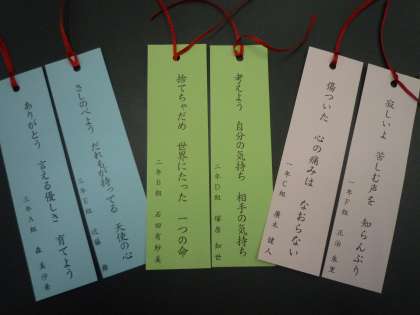 寂しいよ 苦しむ声を 知らんぷり
一年F組
傷ついた 心の痛みは なおらない
一年C組 廣木 健人
考えよう 自分の気持ち 相手の気持ち
二年D組 塚原 知世
捨てちゃだめ 世界にたった 一つの命
二年B組 石田有紗美
さしのべよう だれもが持ってる 天使の心
三年E組
ありがとう 言える優しさ 育てよう
三年A組 森 美沙希